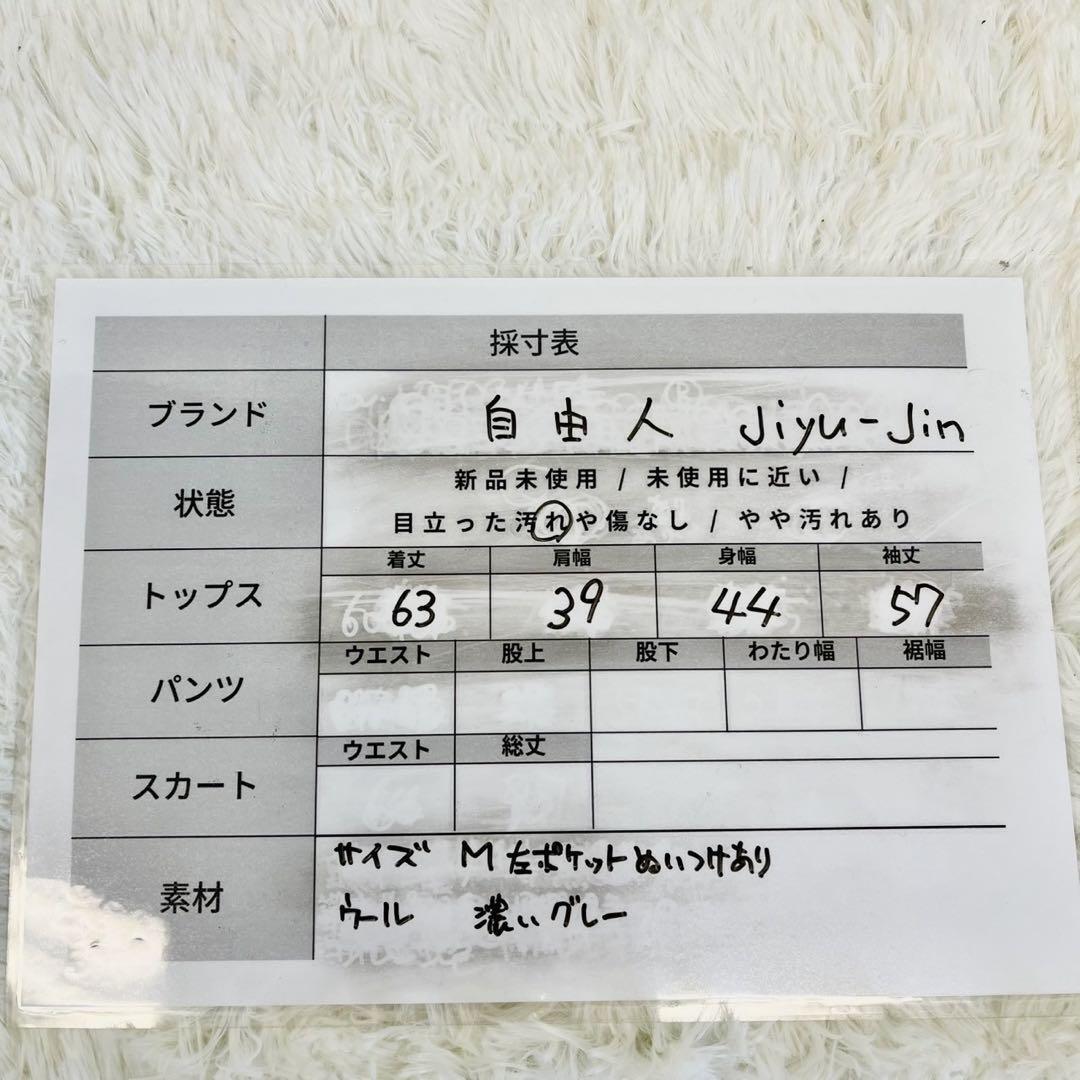 採寸表
ブランド 自由人 Jiyu-Jin
状態 新品未使用 / 未使用に近い /
目立った汚れや傷なし / やや汚れあり
着丈 肩幅 身幅 袖丈
トップス 63 39 44 57
ウエスト 股上 股下 わたり幅 裾幅
パンツ
ウエスト 総丈
スカート
サイズ M 左ポケットぬいつけあり
素材
ウール 濃いグレー